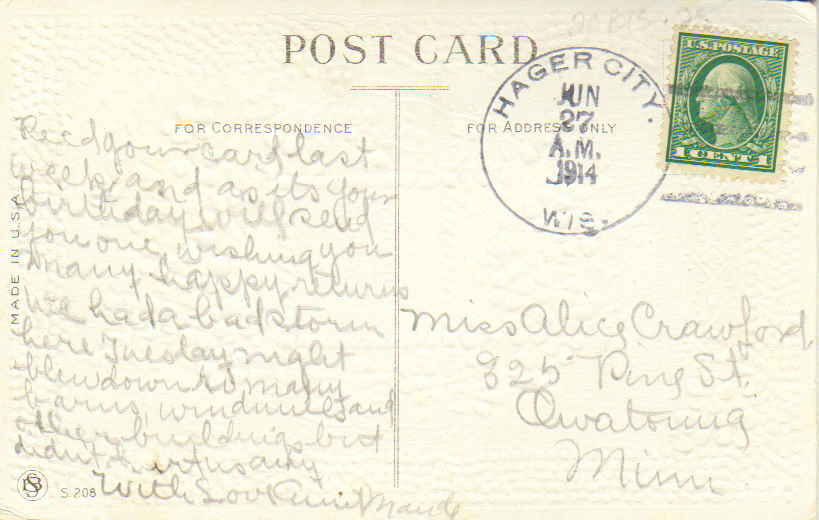 POST CARD
HAGER CITY.
JUN
27
A.M.
1914
WIS.
U.S. POSTAGE
1 CENT 1
FOR CORRESPONDENCE
FOR ADDRESS ONLY
Recd your card last
week and as its your
birthday will send
you one, wishing you
many happy returns
We had a bad storm
here Tuesday night
blew down so many
barns, windmills and
other buildings but
didnt hurt us any
With Love Aunt Maude
Miss Alice Crawford,
325 Pine St.
Owatonna
Minn.
MADE IN U.S.A.
S. 208